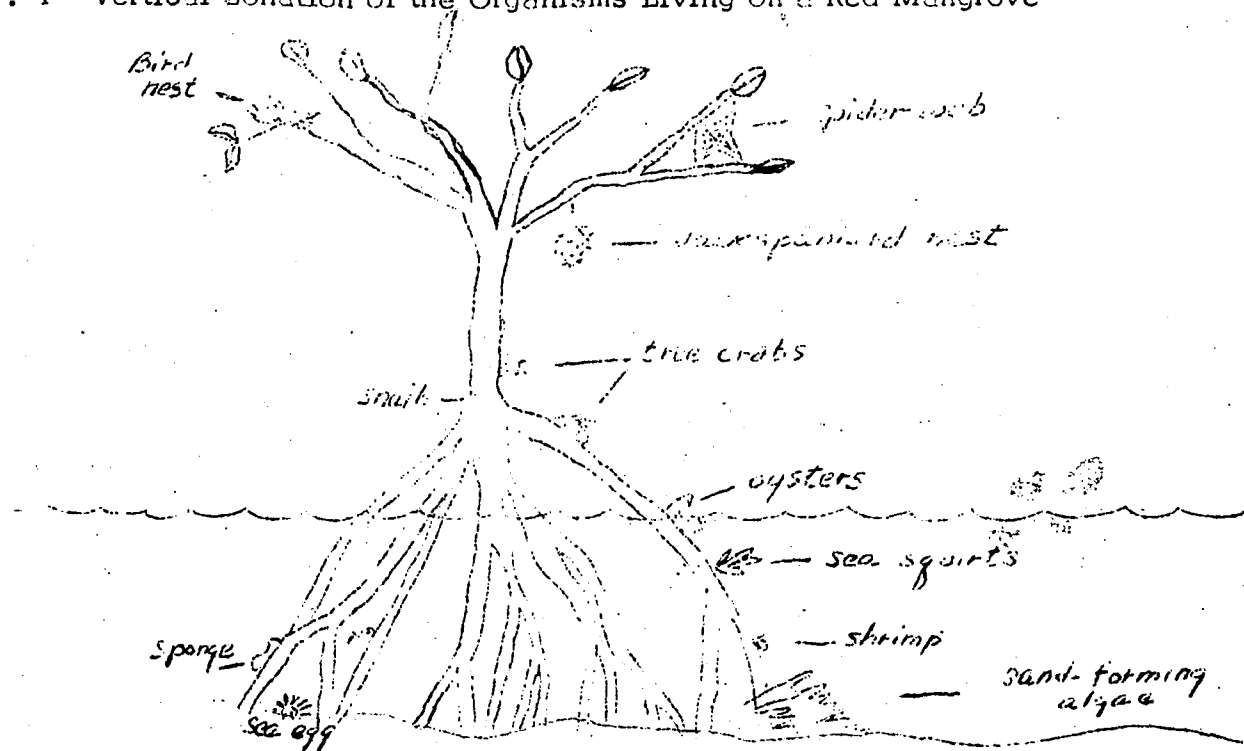 Vertical Zonation of the Organisms Living on a Red Mangrove
Bird
nest
spider web
nest
tree crabs
snail
oysters
sea squirts
shrimp
sponge
sand-forming
algae
sea egg